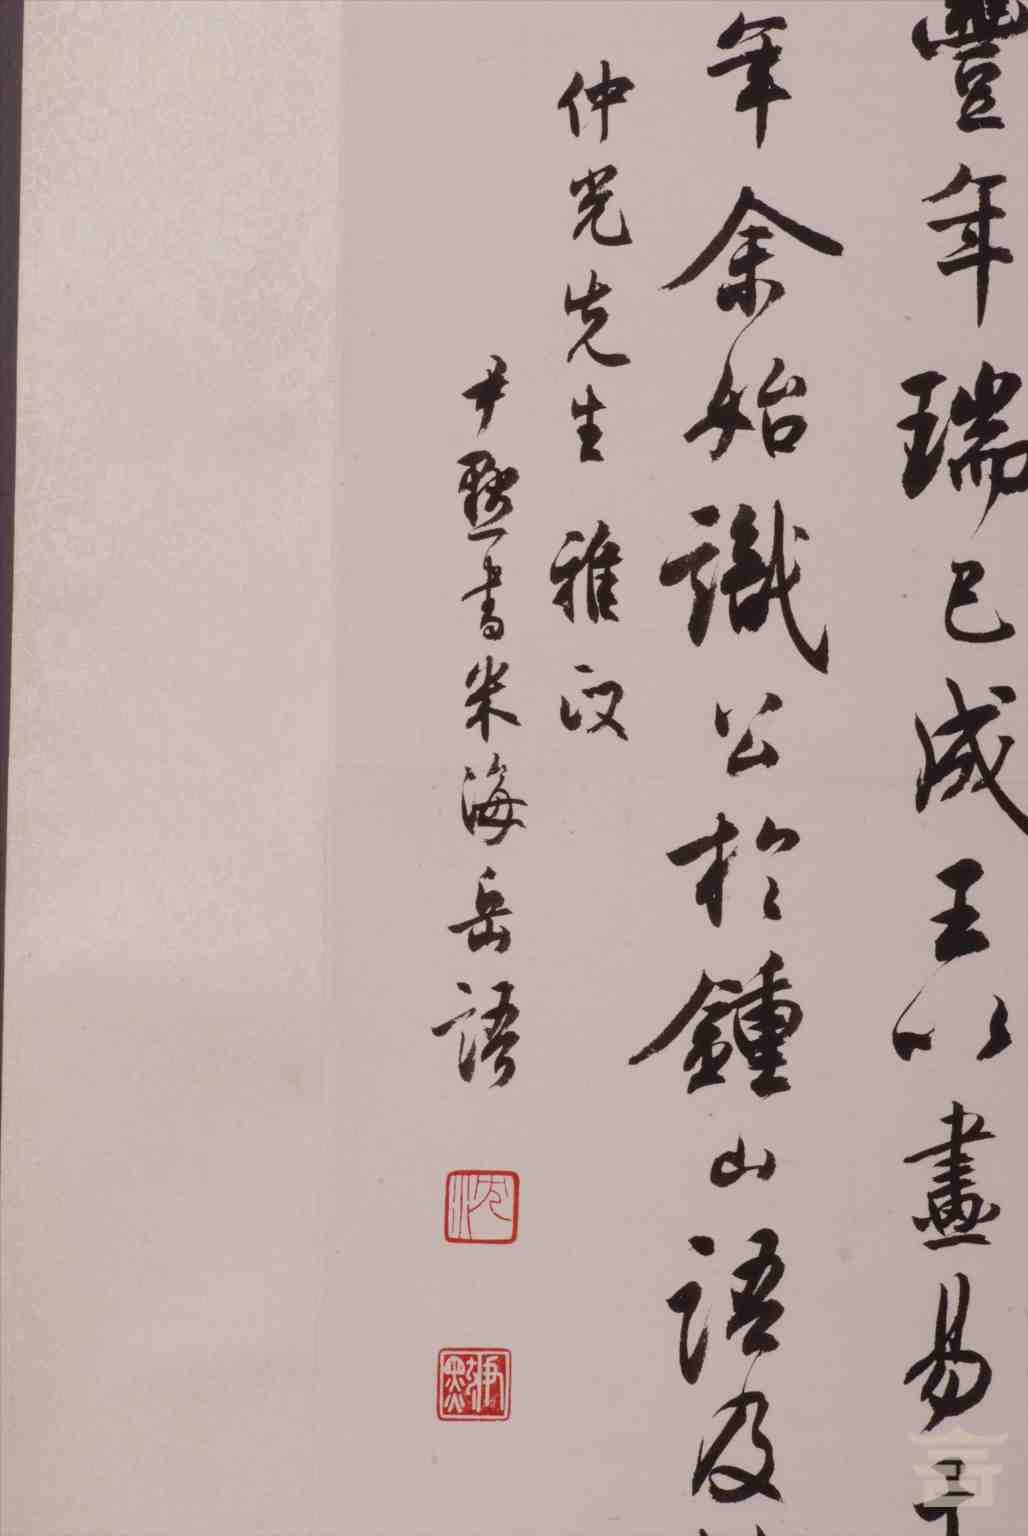 豐年瑞已成王以畫易
年余始識公於鍾山語及
仲光先生雅正
尹默書米海岳語
沈
尹默